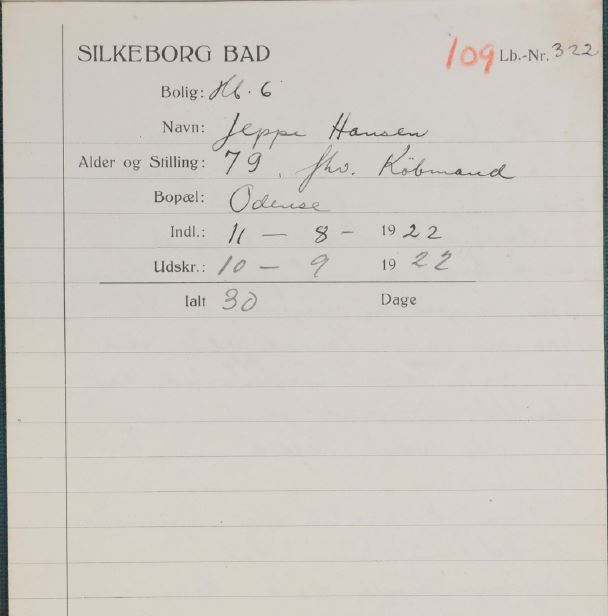 SILKEBORG BAD 109 Lb.-Nr. 322
Bolig: Hb. 6
Navn: Jeppe Hansen
Alder og Stilling: 79, fhv. Köbmand
Bopæl: Odense
Indl.: 11 — 8 - 1922
Udskr.: 10 — 9 1922
Ialt 30 Dage